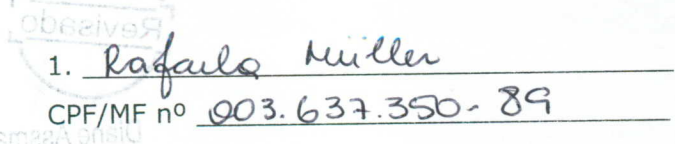 Revisado
1. Rafaela Müller
CPF/MF nº 003.637.350-89